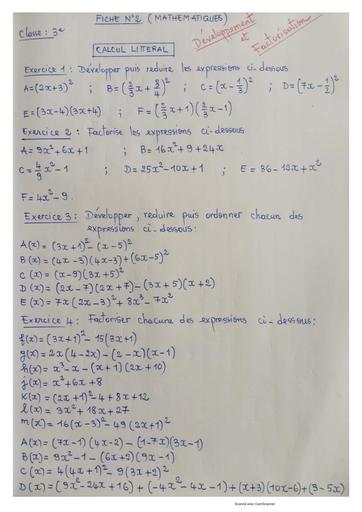 FICHE N°2 (MATHEMATIQUES)
Classe : 3e
Développement et Factorisation
CALCUL LITTERAL
Exercice 1 : Développer puis réduire les expressions ci-dessous
A=(2x+3)² ; B=(2/3x+3/4)² ; C=(x-1/3)² ; D=(7x-1/2)²
E=(3x-4)(3x+4) ; F=(2/3x+1)(2/3x-1)
Exercice 2 : Factorise les expressions ci-dessous
A = 9x²+6x+1 ; B= 16x²+9+24x
C = 4/9x²-1 ; D= 25x²-10x+1 ; E = 36-12x+x²
F= 4x²-9.
Exercice 3 : Développer, reduire puis ordonner chacun des
expressions ci-dessous:
A(x) = (3x+1)²-(x-5)²
B(x) = (4x-3)(4x-3)+(6x-5)²
C(x) = (x-9)(3x+5)²
D(x) = (2x-7)(2x+7)-(3x+5)(x+2)
E(x) = 7x(2x-3)²+8x³-7x²
Exercice 4 : Factoriser chacune des expressions ci-dessous:
f(x) = (3x+1)²-15(3x+1)
g(x) = 2x(4-2x)-(2-x)(x-1)
h(x) = x³-x-(x+1)(2x+10)
j(x) = x²+6x+8
K(x) = (2x+1)²-4+8x+12
l(x) = 3x²+18x+27
m(x) = 16(x-3)²-49(2x+1)²
A(x) = (7x-1)(4x-2)-(1-7x)(3x-1)
B(x) = 9x²-1-(6x+2)(9x-1)
C(x) = 4(4x+1)²-9(3x+2)²
D(x) = (9x²-24x+16)+(-4x²-4x-1)+(x+3)(10x-6)+(3-5x)
Scanné avec CamScanner